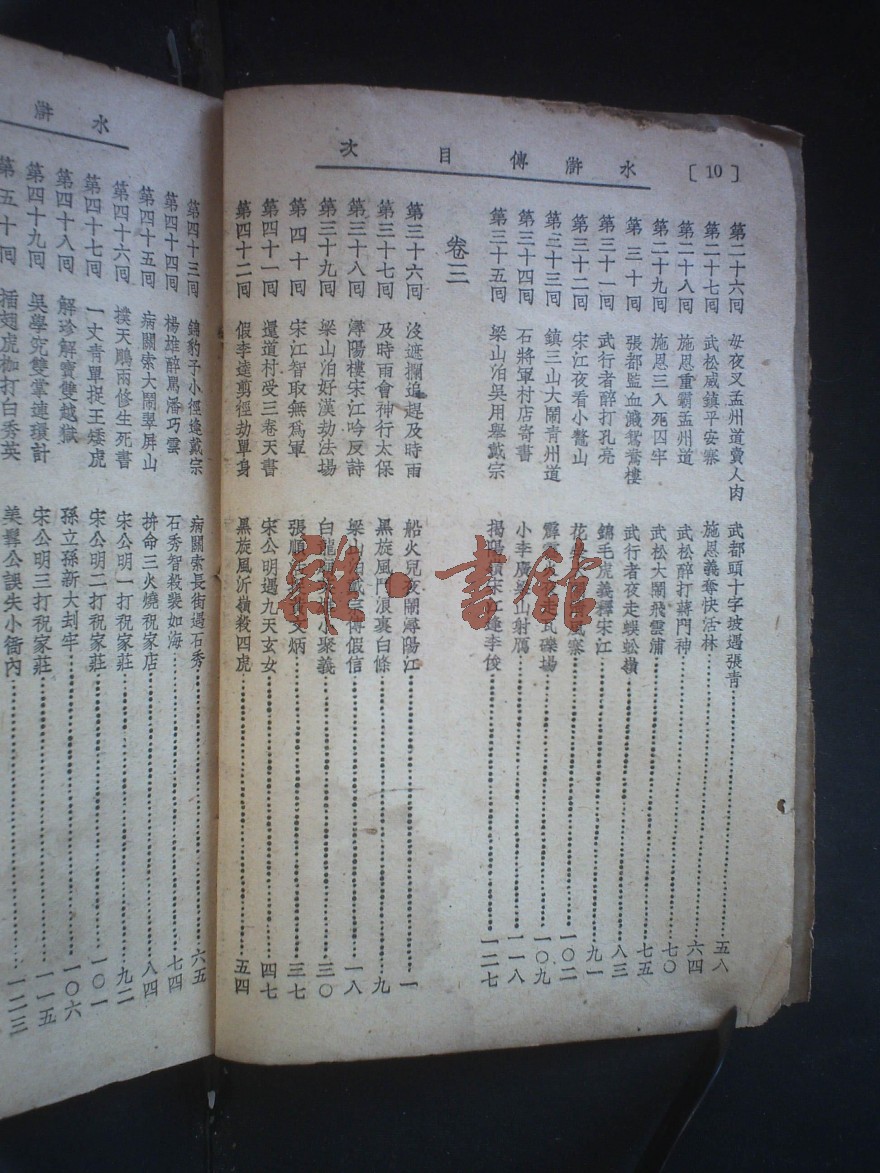 [10]
水滸傳目次
第二十六回 母夜叉孟州道賣人肉 武都頭十字坡遇張青 五八
第二十七回 武松威鎮平安寨 施恩義奪快活林 六四
第二十八回 施恩重霸孟州道 武松醉打蔣門神 七〇
第二十九回 施恩三入死囚牢 武松大鬧飛雲浦 七五
第三十回 張都監血濺鴛鴦樓 武行者夜走蜈蚣嶺 八三
第三十一回 武行者醉打孔亮 錦毛虎義釋宋江 九一
第三十二回 宋江夜看小鰲山 花 寨 一〇二
第三十三回 鎮三山大鬧青州道 霹 走瓦礫場 一〇九
第三十四回 石將軍村店寄書 小李廣梁山射鴈 一一八
第三十五回 梁山泊吳用舉戴宗 揭陽嶺宋江逢李俊 一二七
卷三
第三十六回 沒遮攔追趕及時雨 船火兒夜鬧潯陽江 一
第三十七回 及時雨會神行太保 黑旋風鬥浪裏白條 九
第三十八回 潯陽樓宋江吟反詩 梁山泊戴宗傳假信 一八
第三十九回 梁山泊好漢劫法場 白龍 小聚義 三〇
第四十回 宋江智取無爲軍 張順 文炳 三七
第四十一回 還道村受三卷天書 宋公明遇九天玄女 四七
第四十二回 假李逵剪徑劫單身 黑旋風沂嶺殺四虎 五四
水滸
第四十三回 錦豹子小徑逢戴宗 病關索長街遇石秀 六五
第四十四回 楊雄醉罵潘巧雲 石秀智殺裴如海 七四
第四十五回 病關索大鬧翠屏山 拚命三火燒祝家店 八四
第四十六回 撲天鵰兩修生死書 宋公明一打祝家莊 九二
第四十七回 一丈青單捉王矮虎 宋公明二打祝家莊 一〇一
第四十八回 解珍解寶雙越獄 孫立孫新大刦牢 一〇六
第四十九回 吳學究雙掌連環計 宋公明三打祝家莊 一一五
第五十回 插翅虎枷打白秀英 美髯公誤失小衙內 一二三
雜·書館